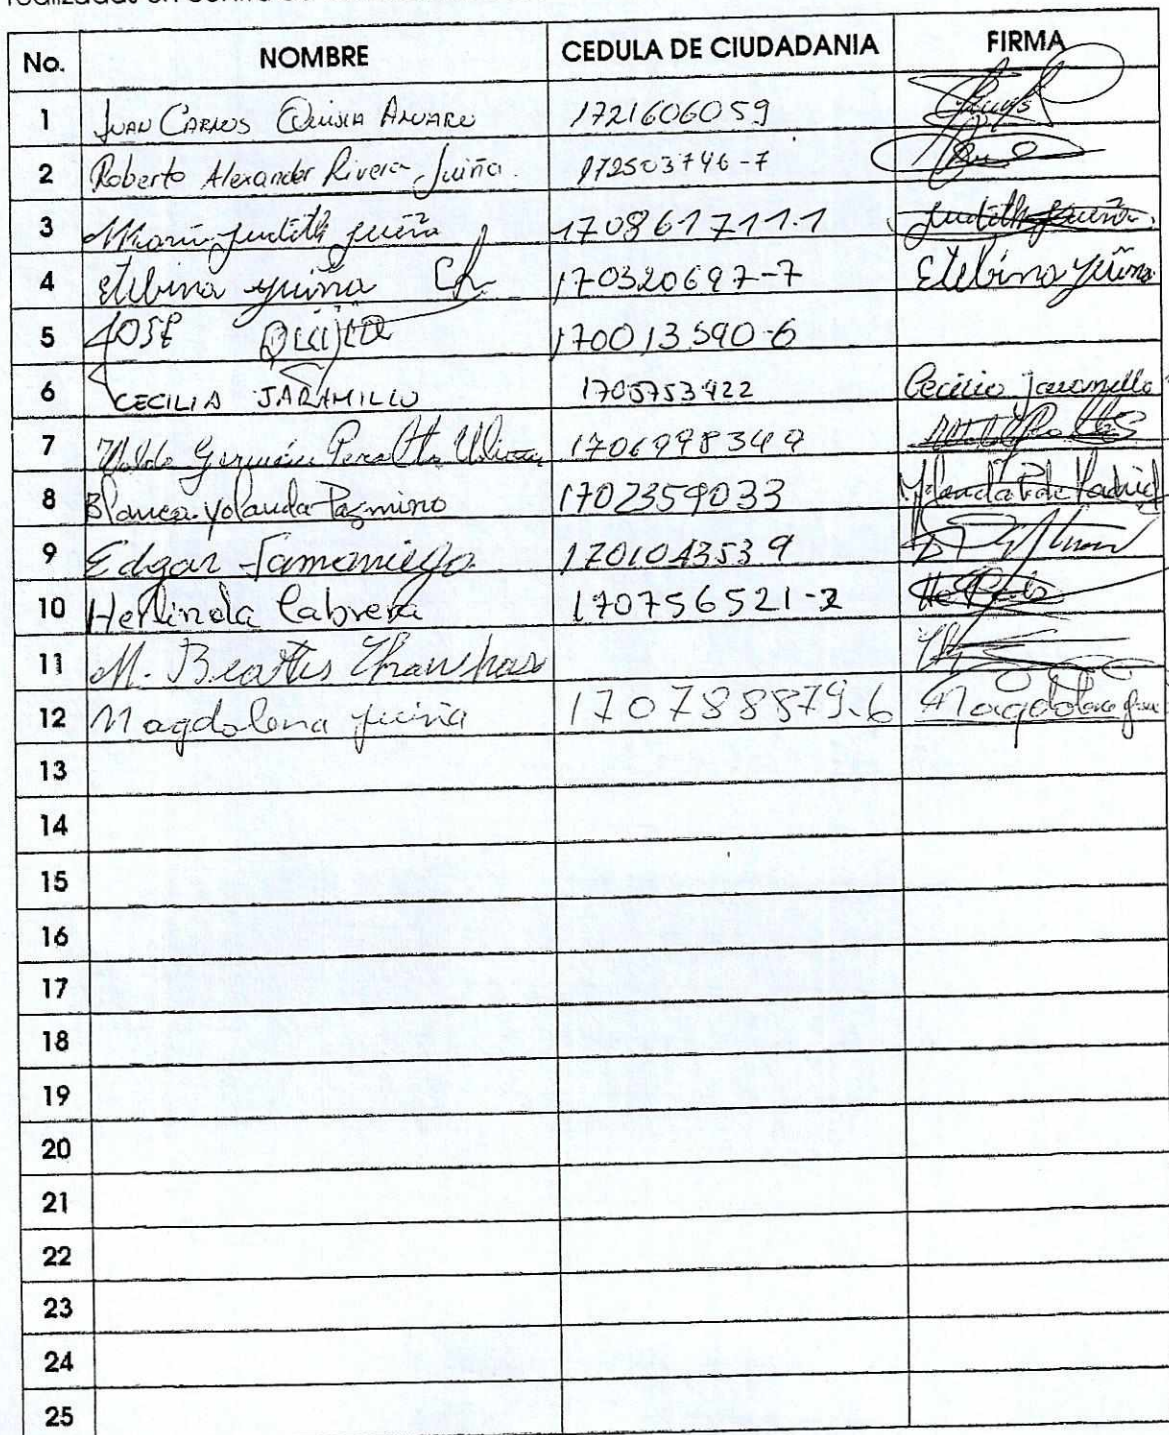 No. NOMBRE CEDULA DE CIUDADANIA FIRMA
1 JUAN CARLOS 1721606059
2 Roberto Alexander Rivera Juiña. 172503746-7
3 Maria Judith Juiña 170861711.1 Judith Juiña
4 Etelbina Yuiña Ch. 170320697-7 Etelbina Yuiña
5 JOSE 170013590-6
6 CECILIA JARAMILLO 1705753422 Cecilia Jaramillo
7 Germán Peralta 1706998349
8 Blanca Yolanda Pazmino 1702359033 Yolanda P de
9 Edgar Samaniego 1701043539
10 Herlinda Cabrera 170756521-2
11 M. Beatris
12 Magdalena Juiña 170788879-6 Magdalena
13
14
15
16
17
18
19
20
21
22
23
24
25